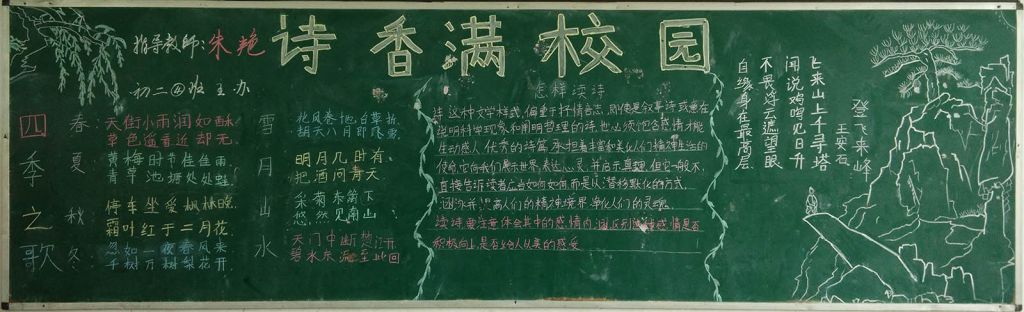 诗香满校园
指导教师：朱艳
初二④班 主办
四季之歌
春：天街小雨润如酥
草色遥看近却无
夏：黄梅时节佳佳雨
青草池塘处处蛙
秋：停车坐爱枫林晚
霜叶红于二月花
冬：忽如一夜春风来
千树万树梨花开
雪
北风卷地白草折
胡天八月即飞雪
月
明月几时有
把酒问青天
山
采菊东篱下
悠然见南山
水
天门中断楚江开
碧水东流至此回
怎样读诗
诗这种文学样式，偏重于抒情言志，即使是叙事诗或重在
说明科学现象和阐明哲理的诗，也必须饱含感情才能
生动感人。优秀的诗篇，承担着丰富和美化人们精神生活的
使命，它向我们展示世界，表达心灵，并启示真理，但它一般不
直接告诉读者应当如何如何，而是从潜移默化的方式，
逐渐提高人们的精神境界，净化人们的灵魂。
读诗要注意体会其中的感情内涵，区别情感情是否
积极向上，是否给人以美的感受
登飞来峰
王安石
飞来山上千寻塔
闻说鸡鸣见日升
不畏浮云遮望眼
自缘身在最高层